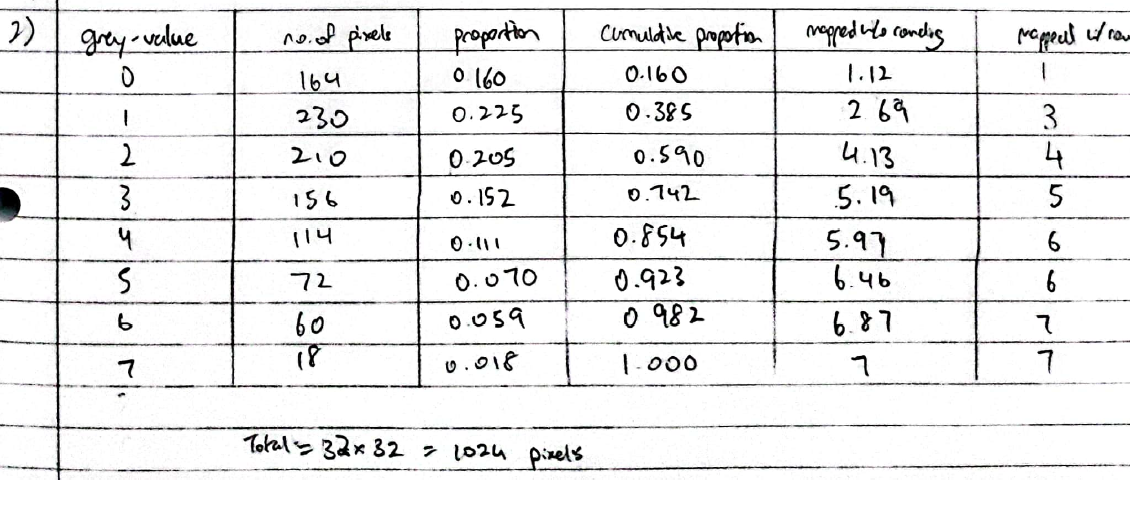 2) grey-value no. of pixels proportion Cumulative proportion mapped w/o rounding mapped w/ rou
0 164 0.160 0.160 1.12 1
1 230 0.225 0.385 2.69 3
2 210 0.205 0.590 4.13 4
3 156 0.152 0.742 5.19 5
4 114 0.111 0.854 5.97 6
5 72 0.070 0.923 6.46 6
6 60 0.059 0.982 6.87 7
7 18 0.018 1.000 7 7
Total = 32 x 32 = 1024 pixels